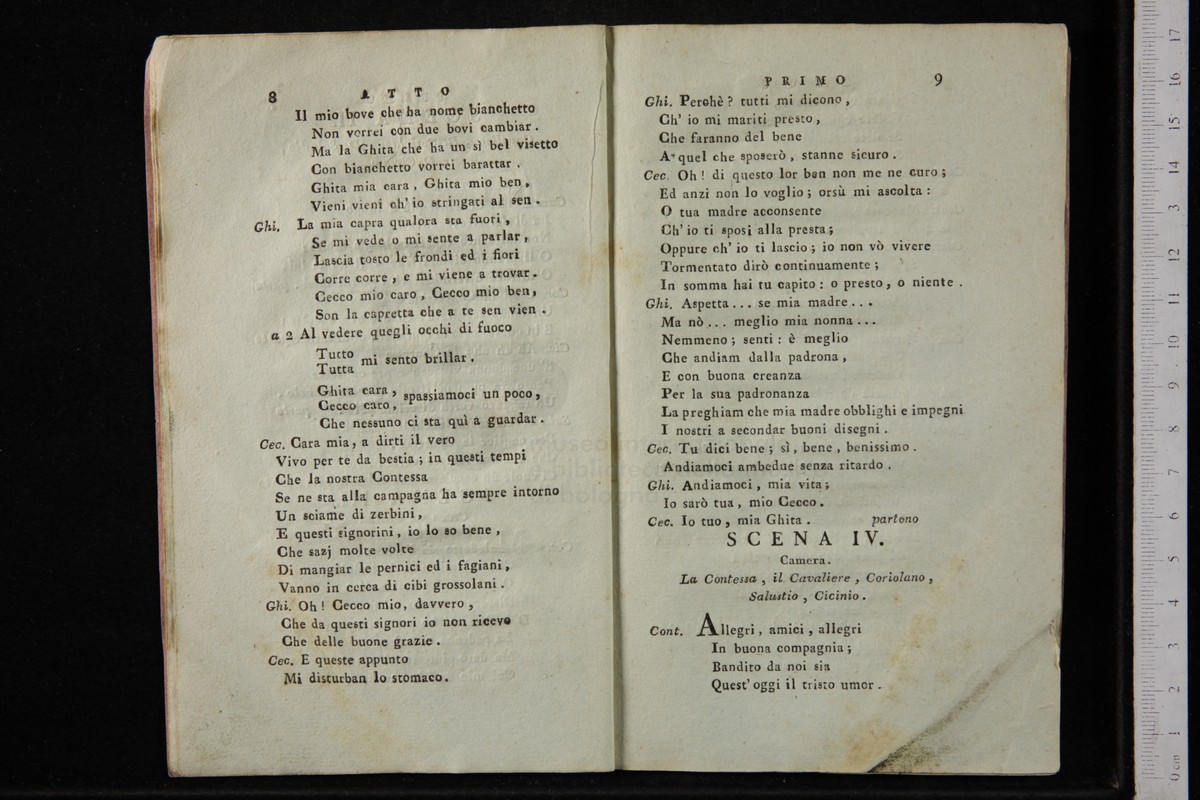 8 ATTO
Il mio bove che ha nome bianchetto
Non vorrei con due bovi cambiar.
Ma la Ghita che ha un sì bel visetto
Con bianchetto vorrei barattar.
Ghita mia cara, Ghita mio ben,
Vieni vieni ch' io stringati al sen.
Ghi. La mia capra qualora sta fuori,
Se mi vede o mi sente a parlar,
Lascia tosto le frondi ed i fiori
Corre corre, e mi viene a trovar.
Cecco mio caro, Cecco mio ben,
Son la capretta che a te sen vien.
a 2 Al vedere quegli occhi di fuoco
Tutto
Tutta mi sento brillar.
Ghita cara,
Cecco caro, spassiamoci un poco,
Che nessuno ci sta quì a guardar.
Cec. Cara mia, a dirti il vero
Vivo per te da bestia; in questi tempi
Che la nostra Contessa
Se ne sta alla campagna ha sempre intorno
Un sciame di zerbini,
E questi signorini, io lo so bene,
Che sazj molte volte
Di mangiar le pernici ed i fagiani,
Vanno in cerca di cibi grossolani.
Ghi. Oh! Cecco mio, davvero,
Che da questi signori io non ricevo
Che delle buone grazie.
Cec. E queste appunto
Mi disturban lo stomaco.
PRIMO 9
Ghi. Perchè? tutti mi dicono,
Ch' io mi mariti presto,
Che faranno del bene
A quel che sposerò, stanne sicuro.
Cec. Oh! di questo lor ben non me ne curo;
Ed anzi non lo voglio; orsù mi ascolta:
O tua madre acconsente
Ch' io ti sposi alla presta;
Oppure ch' io ti lascio; io non vò vivere
Tormentato dirò continuamente;
In somma hai tu capito: o presto, o niente.
Ghi. Aspetta... se mia madre...
Ma nò... meglio mia nonna...
Nemmeno; senti: è meglio
Che andiam dalla padrona,
E con buona creanza
Per la sua padronanza
La preghiam che mia madre obblighi e impegni
I nostri a secondar buoni disegni.
Cec. Tu dici bene; sì, bene, benissimo.
Andiamoci ambedue senza ritardo.
Ghi. Andiamoci, mia vita;
Io sarò tua, mio Cecco.
Cec. Io tuo, mia Ghita. partono
SCENA IV.
Camera.
La Contessa, il Cavaliere, Coriolano,
Salustio, Cicinio.
Cont. Allegri, amici, allegri
In buona compagnia;
Bandito da noi sia
Quest' oggi il tristo umor.